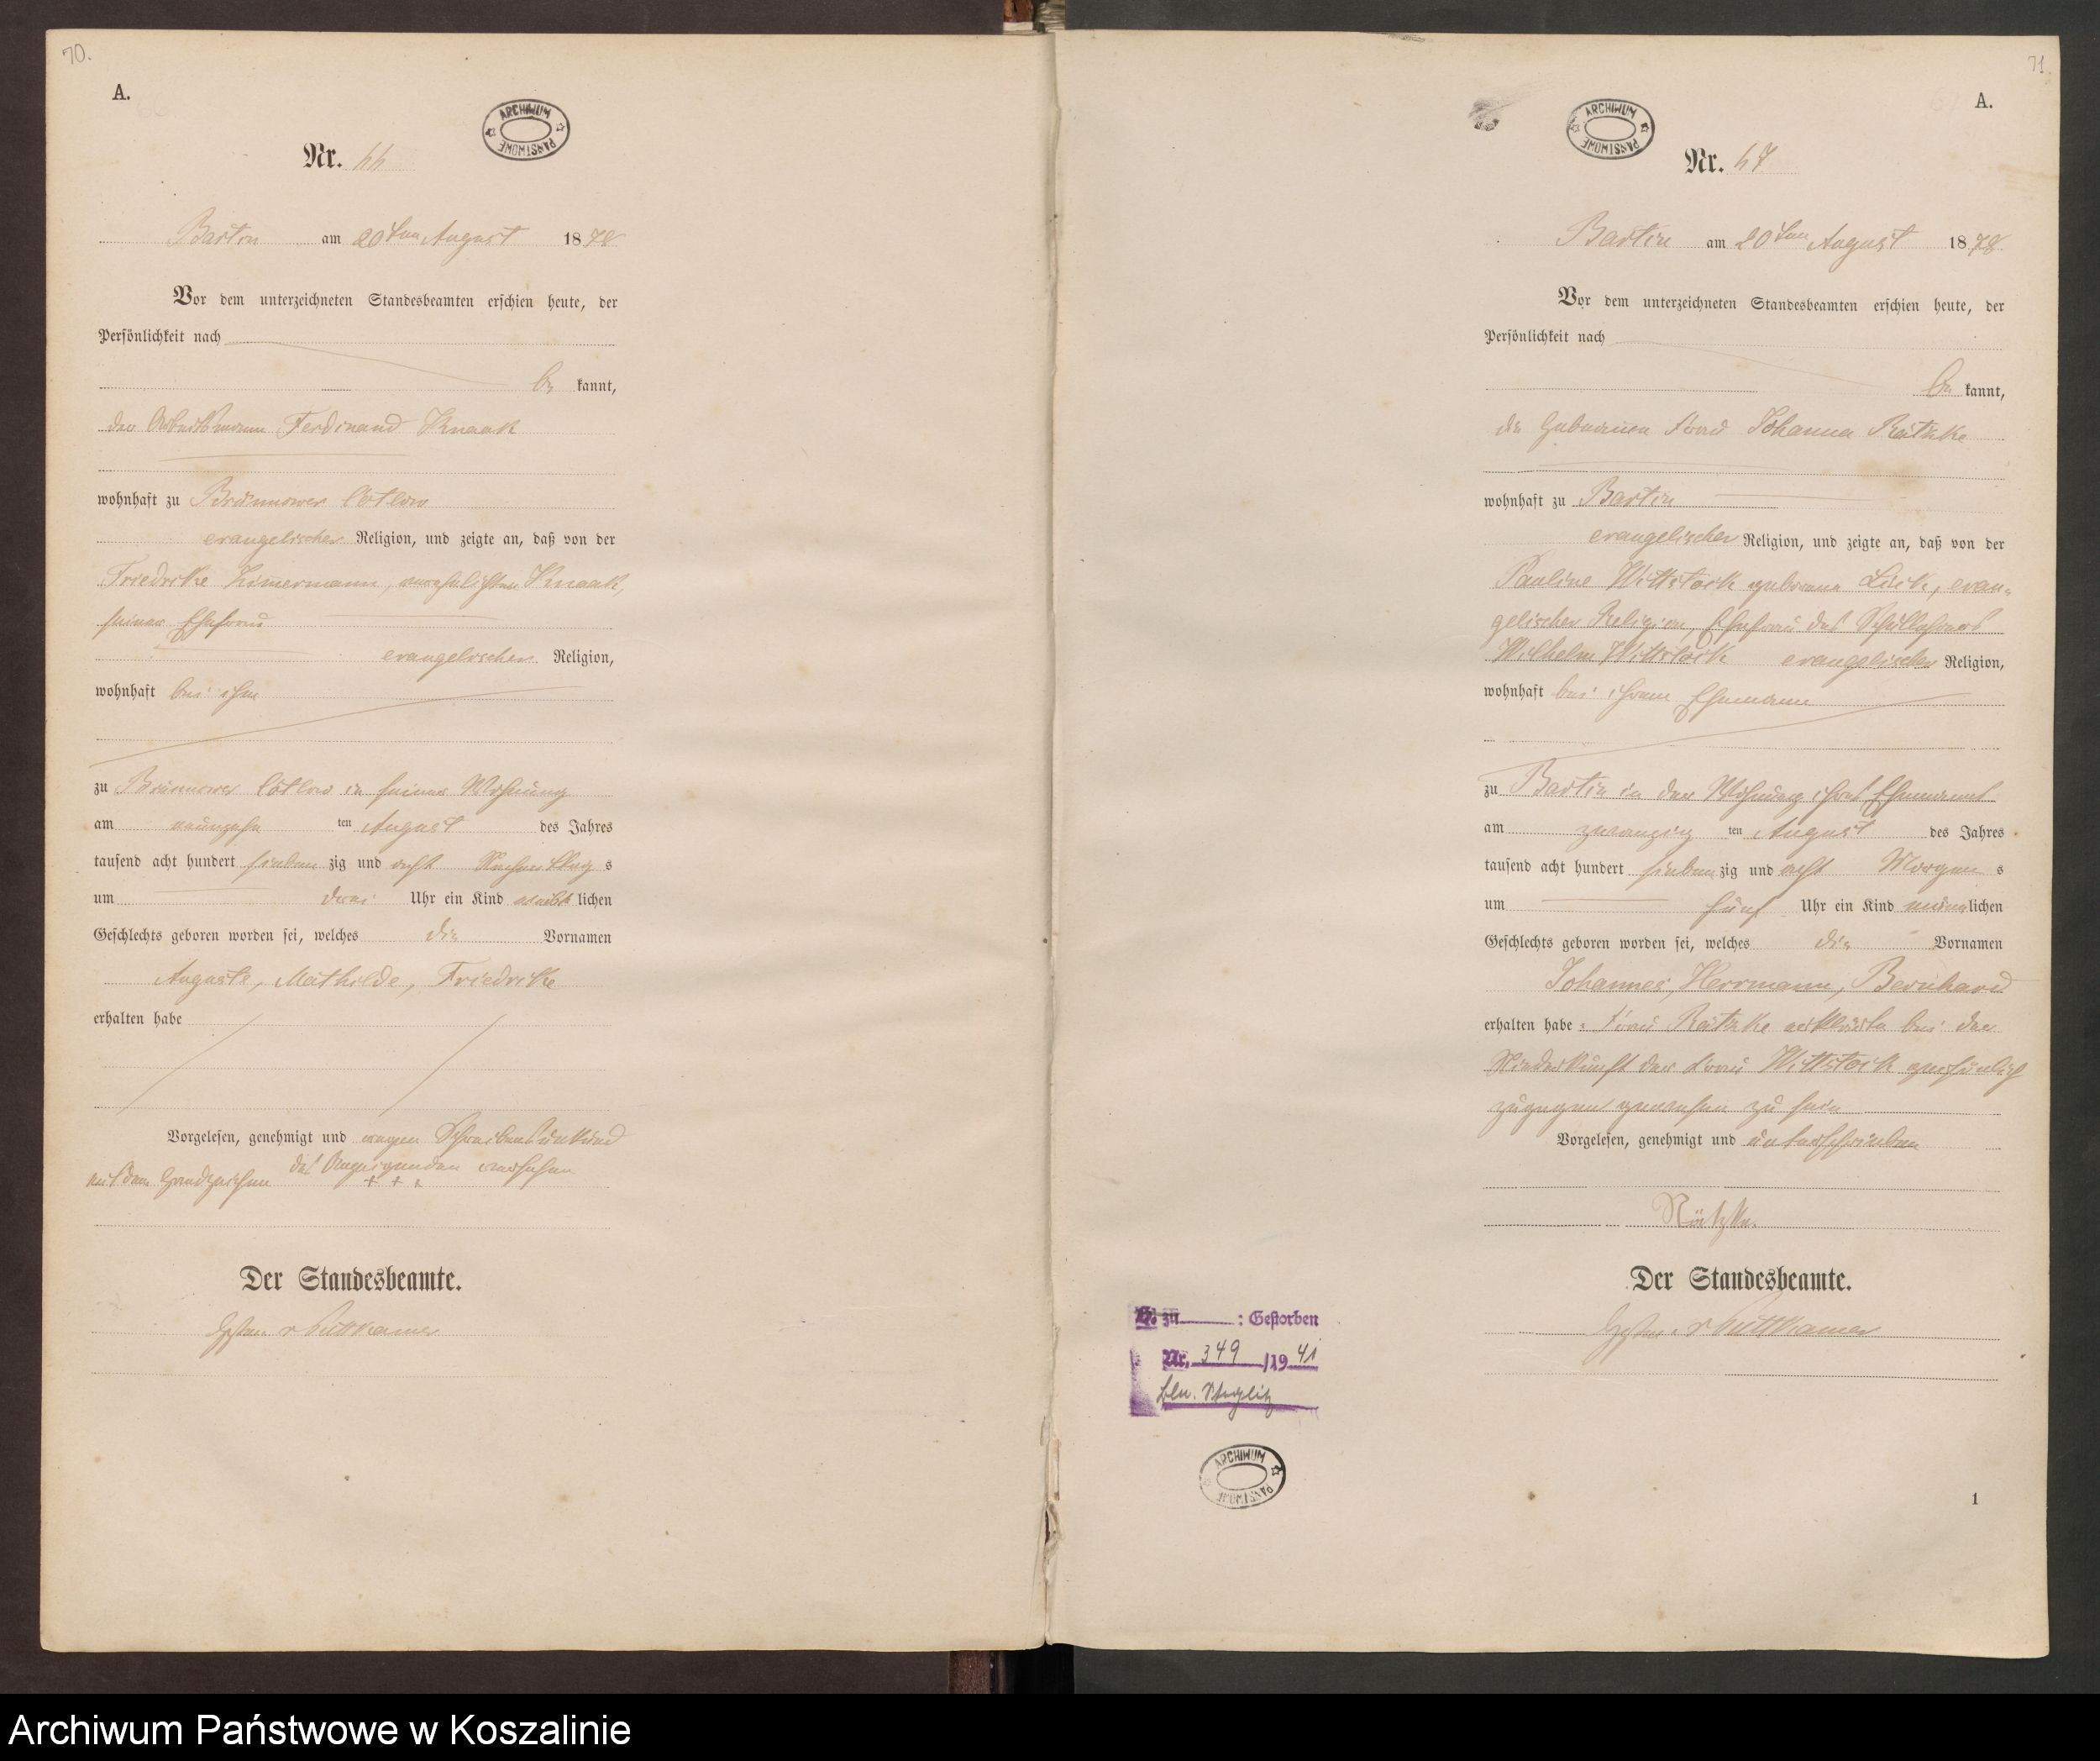 70.
A.
ARCHIWUM PAŃSTWOWE
Nr. 66
Bartin am 20ten August 1878
Vor dem unterzeichneten Standesbeamten erschien heute, der
Persönlichkeit nach
be kannt,
der Arbeitsmann Ferdinand Knaak
wohnhaft zu Brünnower Cotlow
evangelischer Religion, und zeigte an, daß von der
Friedrike Zimermann, verehelichten Knaak,
seiner Ehefrau
evangelischer Religion,
wohnhaft bei ihm
zu Brünnower Cotlow in seiner Wohnung
am neunzehn ten August des Jahres
tausend acht hundert sieben zig und acht Nachmittag s
um drei Uhr ein Kind weib lichen
Geschlechts geboren worden sei, welches die Vornamen
Auguste, Mathilde, Friedrike
erhalten habe
Vorgelesen, genehmigt und wegen Schreibensunkund
des Anzeigenden versehen
mit dem Handzeichen + + +
Der Standesbeamte.
v Puttkamer
71
A.
ARCHIWUM PAŃSTWOWE
Nr. 67
Bartin am 20ten August 1878
Vor dem unterzeichneten Standesbeamten erschien heute, der
Persönlichkeit nach
be kannt,
die Hebamme Frau Johanna Rätzke
wohnhaft zu Bartin
evangelischer Religion, und zeigte an, daß von der
Pauline Wittstock geborene Lück, evan-
gelischer Religion, Ehefrau des Schullehrers
Wilhelm Wittstock evangelischer Religion,
wohnhaft bei ihrem Ehemann
zu Bartin in der Wohnung ihres Ehemannes
am zwanzig ten August des Jahres
tausend acht hundert sieben zig und acht Morgen s
um fünf Uhr ein Kind männlichen
Geschlechts geboren worden sei, welches die Vornamen
Johannes, Herrmann, Bernhard
erhalten habe: Frau Rätzke erklärte bei der
Niederkunft der Frau Wittstock persönlich
zugegen gewesen zu sein
Vorgelesen, genehmigt und unterschrieben
Rätzke.
Der Standesbeamte.
v Puttkamer
zu : Gestorben
Nr. 349 /19 41
Bln. Steglitz
ARCHIWUM PAŃSTWOWE
1
Archiwum Państwowe w Koszalinie